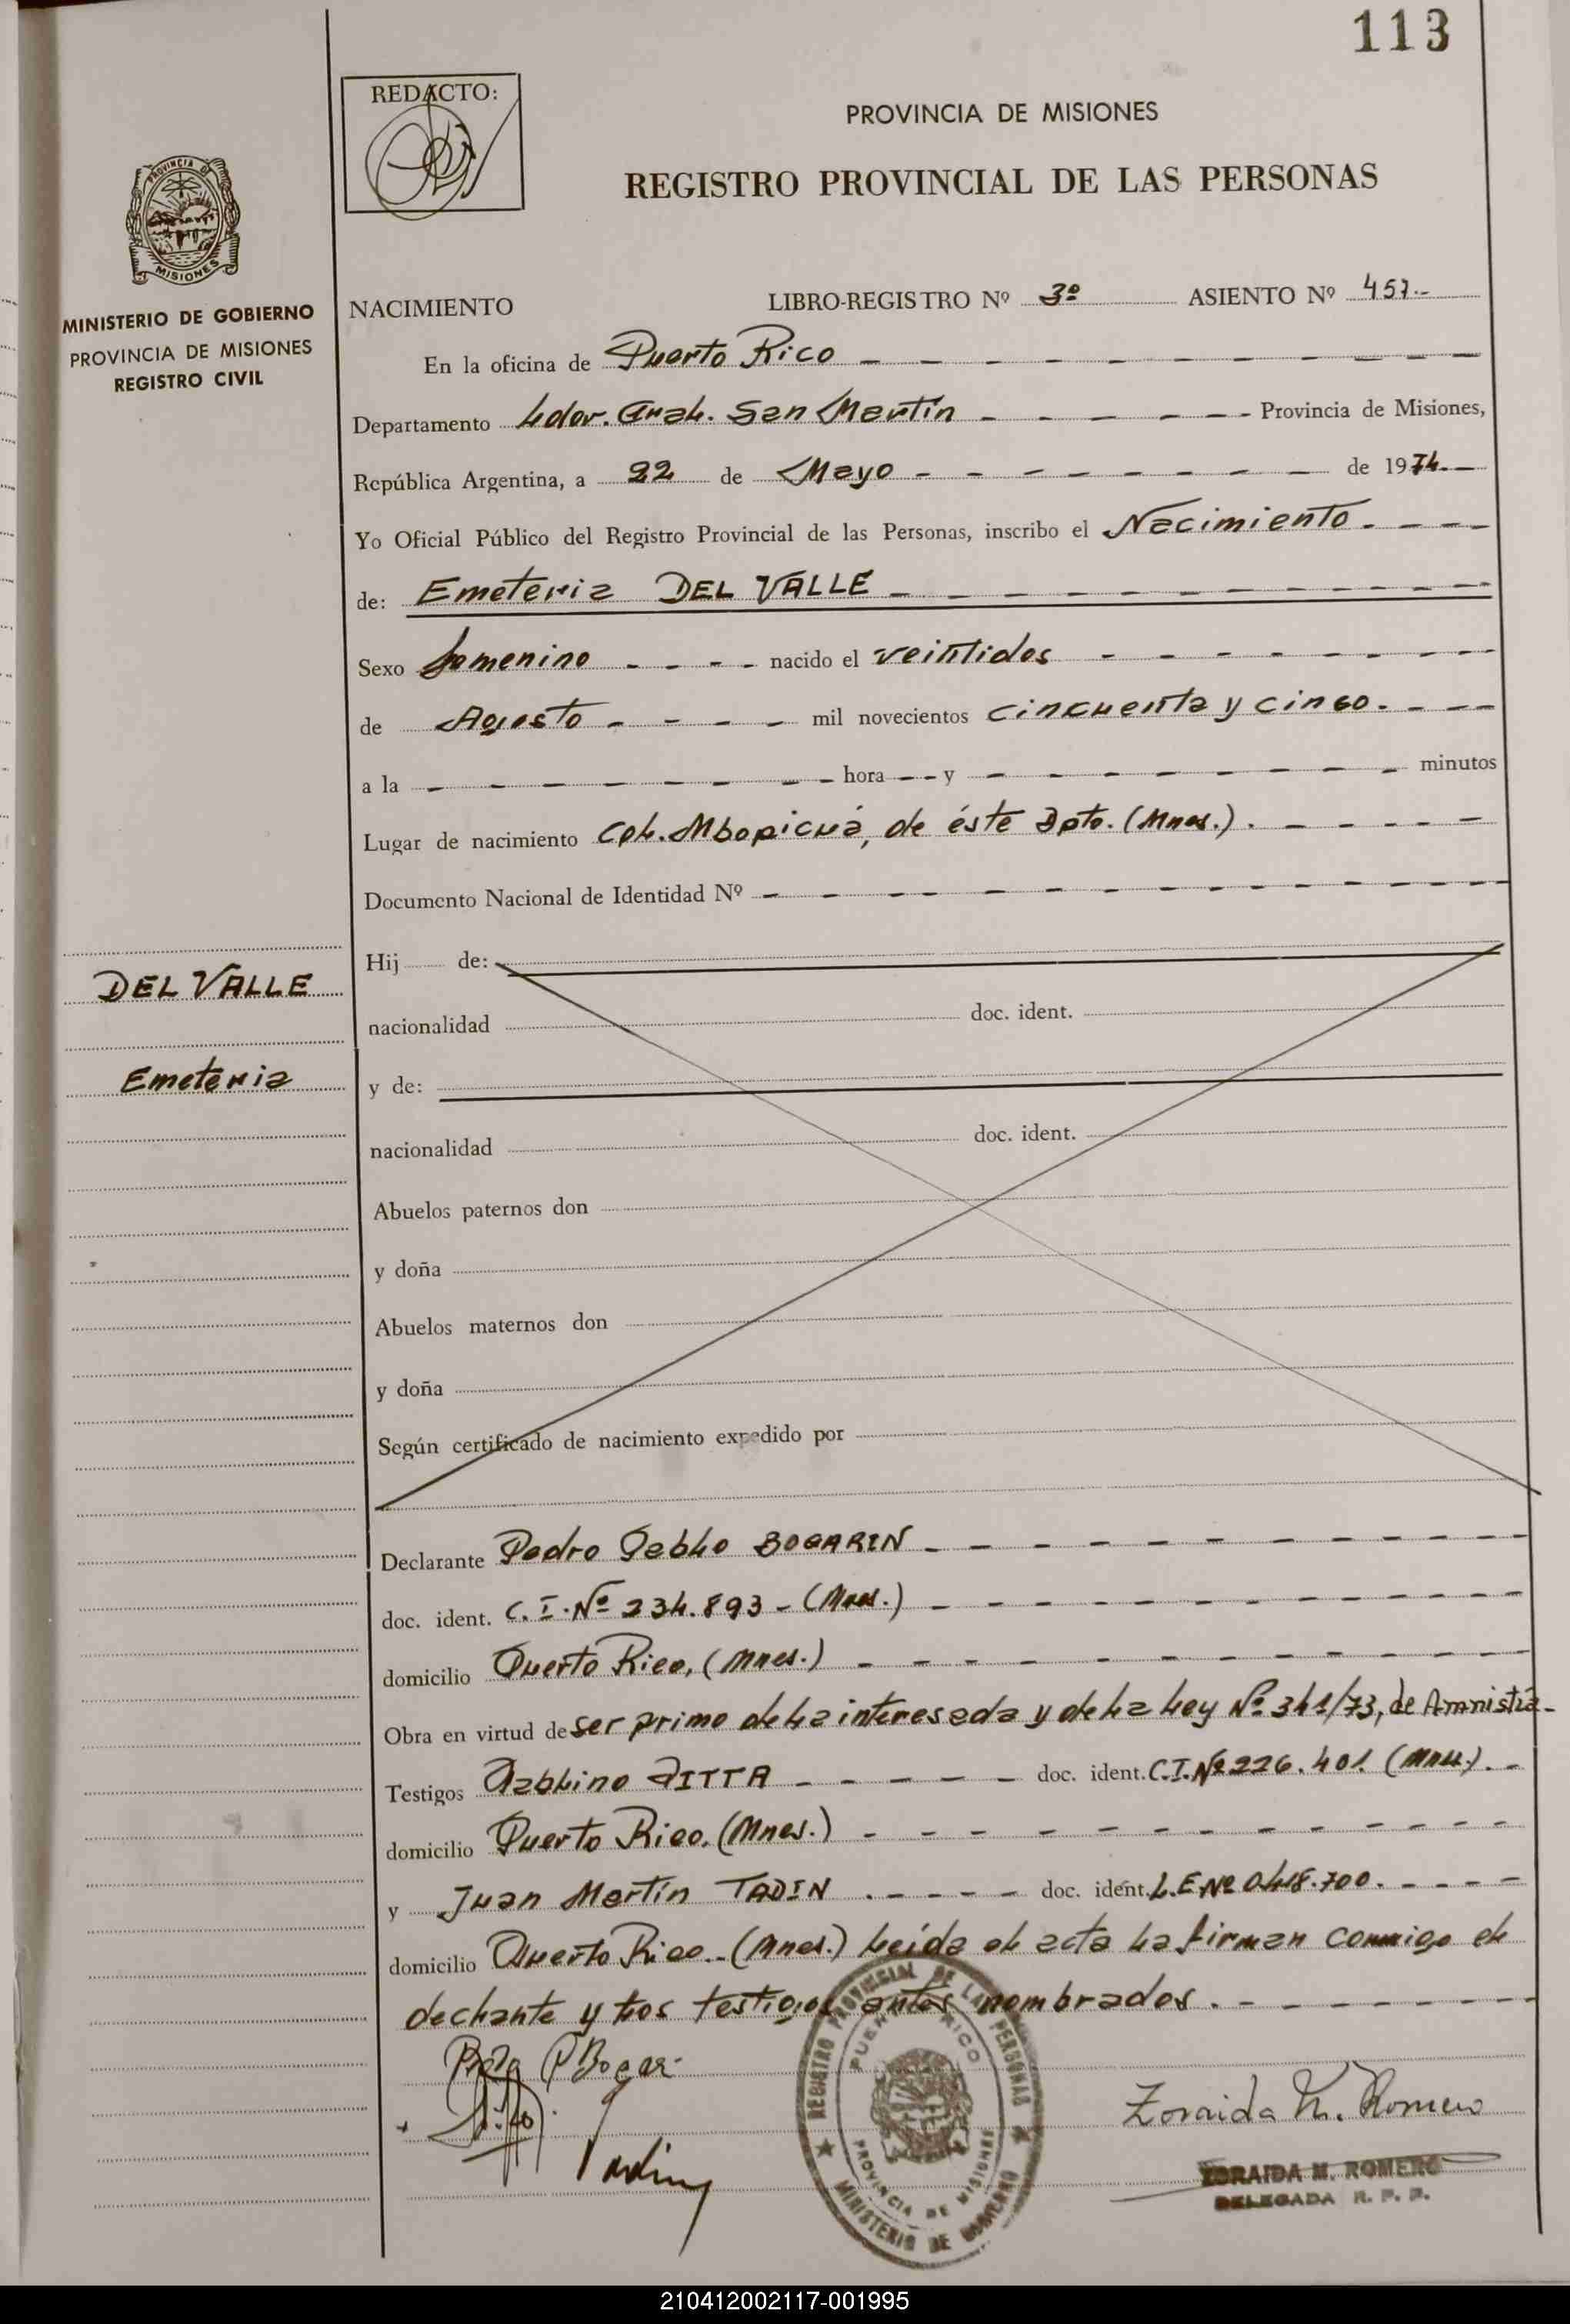 113
REDACTO:
PROVINCIA DE MISIONES
REGISTRO PROVINCIAL DE LAS PERSONAS
PROVINCIA DE
MISIONES
MINISTERIO DE GOBIERNO
PROVINCIA DE MISIONES
REGISTRO CIVIL
NACIMIENTO LIBRO-REGISTRO Nº 3º ASIENTO Nº 457.-
En la oficina de Puerto Rico
Departamento Ldor. Gral. San Martín Provincia de Misiones,
República Argentina, a 22 de Mayo de 1974.
Yo Oficial Público del Registro Provincial de las Personas, inscribo el Nacimiento.
de: Emeteria DEL VALLE
Sexo femenino nacido el veintidos
de Agosto mil novecientos cincuenta y cinco.
a la hora y minutos
Lugar de nacimiento Col. Mbopicuá, de éste Dpto. (Mnes.).
Documento Nacional de Identidad Nº
DEL VALLE
Emeteria
Hij de:
nacionalidad doc. ident.
y de:
nacionalidad doc. ident.
Abuelos paternos don
y doña
Abuelos maternos don
y doña
Según certificado de nacimiento expedido por
Declarante Pedro Pablo BOGARIN
doc. ident. C.I.Nº 234.893 - (Mnes.)
domicilio Puerto Rico, (Mnes.)
Obra en virtud de ser primo de la interesada y de la Ley Nº 341/73, de Amnistía.-
Testigos DITTA doc. ident. C.I.Nº 226.401 (Mnes.).
domicilio Puerto Rico. (Mnes.)
y Juan Martín TADIN doc. ident. L.E.Nº 0.418.700.
domicilio Puerto Rico.-(Mnes.) leída el acta la firman conmigo el
declante y los testigos antes nombrados.
REGISTRO PROVINCIAL DE LAS PERSONAS
PUERTO RICO
PROVINCIA DE MISIONES
MINISTERIO DE GOBIERNO
Zoraida M. Romero
ZORAIDA M. ROMERO
DELEGADA R. P. P.
210412002117-001995